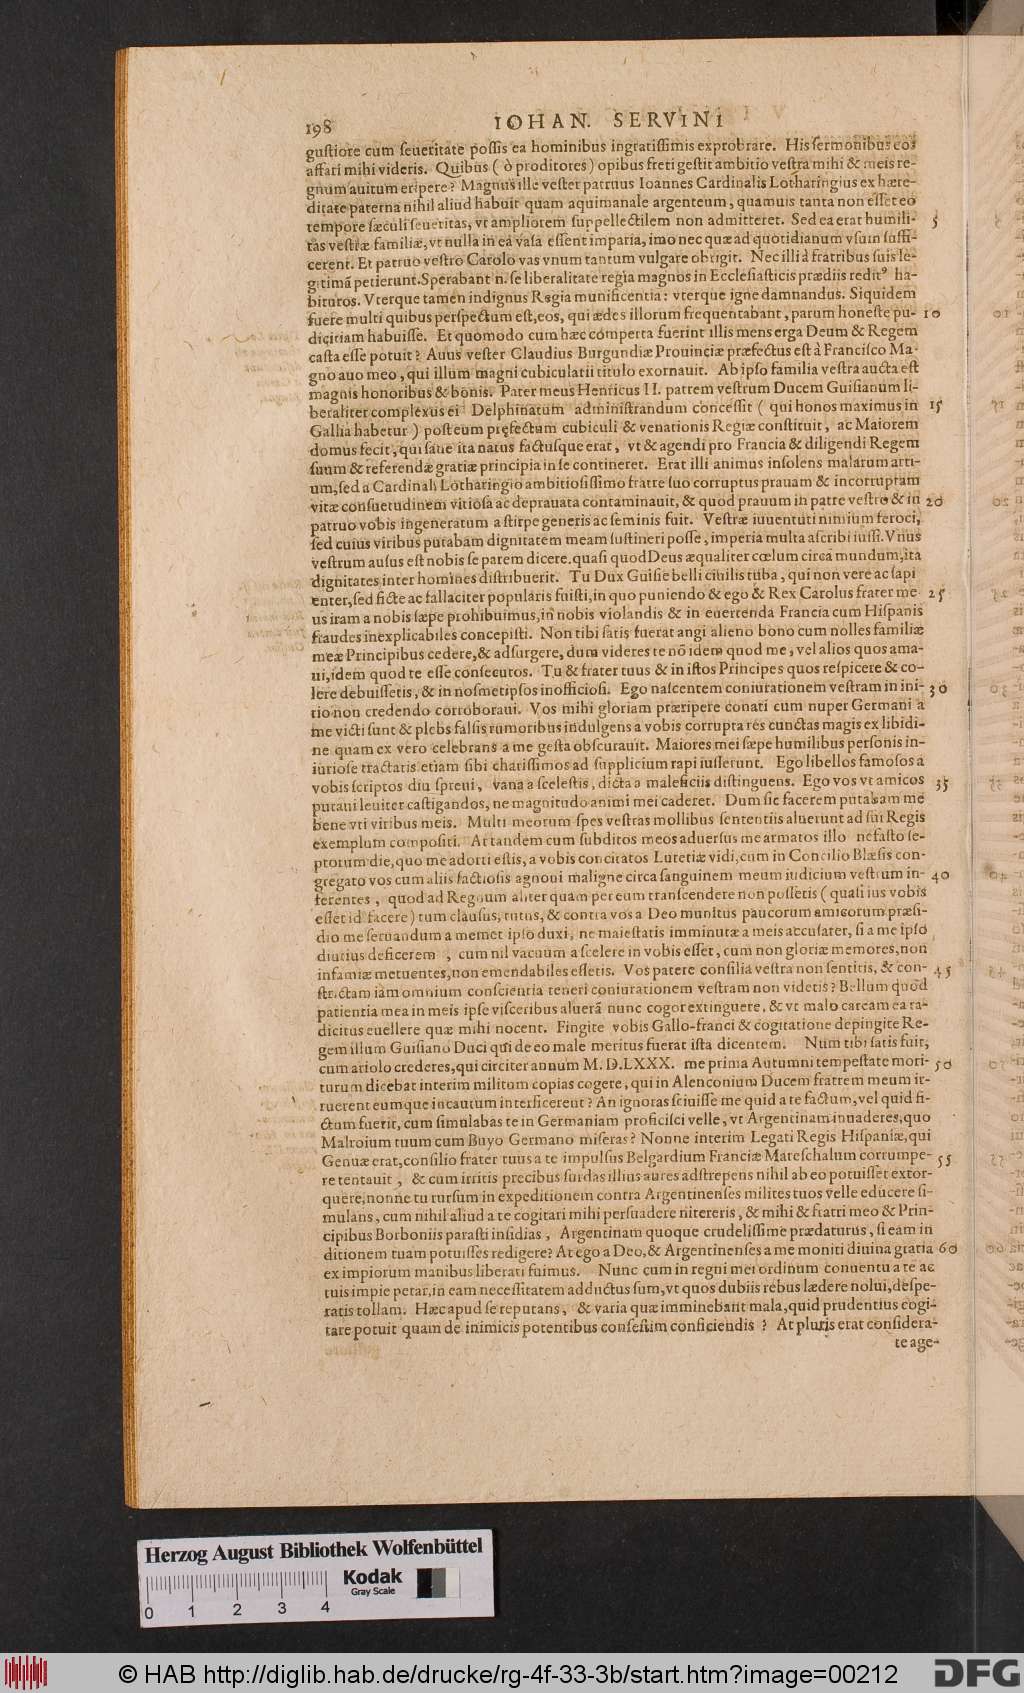 198 IOHAN. SERVINI
guſtiore cum ſeueritate poſſis ea hominibus ingratiſſimis exprobrare. His ſermonibus eos
affari mihi videris. Quibus ( ò proditores ) opibus freti geſtit ambitio veſtra mihi & meis re-
gnum auitum eripere? Magnus ille veſter patruus Ioannes Cardinalis Lotharingius ex hære-
ditate paterna nihil aliud habuit quam aquimanale argenteum, quamuis tanta non eſſet eo
tempore ſæculi ſeueritas, vt ampliorem ſuppellectilem non admitteret. Sed ea erat humili- 5
tas veſtræ familiæ, vt nulla in ea vaſa eſſent imparia, imo nec quæ ad quotidianum vſum ſuffi-
cerent. Et patruo veſtro Carolo vas vnum tantum vulgare obtigit. Nec illi à fratribus ſuis le-
gitimā petierunt. Sperabant n. ſe liberalitate regia magnos in Eccleſiaſticis prædiis redit⁹ ha-
bituros. Vterque tamen indignus Regia munificentia: vterque igne damnandus. Siquidem
fuere multi quibus perſpectum eſt, eos, qui ædes illorum frequentabant, parum honeſte pu- 10
dicitiam habuiſſe. Et quomodo cum hæc comperta fuerint illis mens erga Deum & Regem
caſta eſſe potuit? Auus veſter Claudius Burgundiæ Prouinciæ præfectus eſt à Franciſco Ma-
gno auo meo, qui illum magni cubicularii titulo exornauit. Ab ipſo familia veſtra aucta eſt
magnis honoribus & bonis. Pater meus Henricus II. patrem veſtrum Ducem Guiſianum li-
beraliter complexus ei Delphinatum adminiſtrandum conceſſit ( qui honos maximus in 15
Gallia habetur ) poſt eum pręfectum cubiculi & venationis Regiæ conſtituit, ac Maiorem
domus fecit, qui ſane ita natus factuſque erat, vt & agendi pro Francia & diligendi Regem
ſuum & referendæ gratiæ principia in ſe contineret. Erat illi animus inſolens malarum arti-
um, ſed a Cardinali Lotharingio ambitioſiſſimo fratre ſuo corruptus prauam & incorruptam
vitæ conſuetudinem vitioſa ac deprauata contaminauit, & quod prauum in patre veſtro & in 20
patruo vobis ingeneratum a ſtirpe generis ac ſeminis fuit. Veſtræ iuuentuti nimium feroci,
ſed cuius viribus putabam dignitatem meam ſuſtineri poſſe, imperia multa aſcribi iuſſi. Vnus
veſtrum auſus eſt nobis ſe parem dicere, quaſi quod Deus æqualiter cœlum circa mundum, ita
dignitates inter homines diſtribuerit. Tu Dux Guiſie belli ciuilis tuba, qui non vere ac ſapi
enter, ſed ficte ac fallaciter popularis fuiſti, in quo puniendo & ego & Rex Carolus frater me 25
us iram a nobis ſæpe prohibuimus, in nobis violandis & in euertenda Francia cum Hiſpanis
fraudes inexplicabiles concepiſti. Non tibi ſatis fuerat angi alieno bono cum nolles familiæ
meæ Principibus cedere, & adſurgere, dum videres te nō idem quod me, vel alios quos ama-
ui, idem quod te eſſe conſecutos. Tu & frater tuus & in iſtos Principes quos reſpicere & co-
lere debuiſſetis, & in noſmetipſos inofficioſi. Ego naſcentem coniurationem veſtram in ini- 30
tio non credendo corroboraui. Vos mihi gloriam præripere conati cum nuper Germani a
me victi ſunt & plebs falſis rumoribus indulgens a vobis corrupta res cunctas magis ex libidi-
ne quam ex vero celebrans a me geſta obſcurauit. Maiores mei ſæpe humilibus perſonis in-
iurioſe tractatis etiam ſibi chariſſimos ad ſupplicium rapi iuſſerunt. Ego libellos famoſos a
vobis ſcriptos diu ſpreui, vana a ſceleſtis, dicta a maleficiis diſtinguens. Ego vos vt amicos 35
putaui leuiter caſtigandos, ne magnitudo animi mei caderet. Dum ſic facerem putabam me
bene vti viribus meis. Multi meorum ſpes veſtras mollibus ſententiis aluerunt ad ſui Regis
exemplum compoſiti. At tandem cum ſubditos meos aduerſus me armatos illo nefaſto ſe-
ptorum die, quo me adorti eſtis, a vobis concitatos Lutetiæ vidi, cum in Concilio Blæſis con-
gregato vos cum aliis factioſis agnoui maligne circa ſanguinem meum iudicium veſtrum in- 40
ferentes, quod ad Regnum aliter quam per eum tranſcendere non poſſetis ( quaſi ius vobis
eſſet id facere ) tum clauſus, tutus, & contra vos a Deo munitus paucorum amicorum præſi-
dio me ſeruandum a memet ipſo duxi, ne maieſtatis imminutæ a meis accuſarer, ſi a me ipſo
diutius deficerem, cum nil vacuum a ſcelere in vobis eſſet, cum non gloriæ memores, non
infamiæ metuentes, non emendabiles eſſetis. Vos patere conſilia veſtra non ſentitis, & con- 45
ſtrictam iam omnium conſcientia teneri coniurationem veſtram non videtis? Bellum quod
patientia mea in meis ipſe viſceribus aluerā nunc cogor extinguere, & vt malo caream ea ra-
dicitus euellere quæ mihi nocent. Fingite vobis Gallo-franci & cogitatione depingite Re-
gem illum Guiſiano Duci qui de eo male meritus fuerat iſta dicentem. Num tibi ſatis fuit,
cum ariolo crederes, qui circiter annum M. D. LXXX. me prima Autumni tempeſtate mori- 50
turum dicebat interim militum copias cogere, qui in Alenconium Ducem fratrem meum ir-
ruerent eumque incautum interficerent? An ignoras ſciuiſſe me quid a te factum, vel quid fi-
ctum fuerit, cum ſimulabas te in Germaniam proficiſci velle, vt Argentinam inuaderes, quo
Malroium tuum cum Buyo Germano miſeras? Nonne interim Legati Regis Hiſpaniæ, qui
Genuæ erat, conſilio frater tuus a te impulſus Belgardium Franciæ Mareſchalum corrumpe- 55
re tentauit, & cum irritis precibus ſurdas illius aures adſtrepens nihil ab eo potuiſſet extor-
quere, nonne tu rurſum in expeditionem contra Argentinenſes milites tuos velle educere ſi-
mulans, cum nihil aliud a te cogitari mihi perſuadere nitereris, & mihi & fratri meo & Prin-
cipibus Borboniis paraſti inſidias, Argentinam quoque crudeliſſime prædaturus, ſi eam in
ditionem tuam potuiſſes redigere? At ego a Deo, & Argentinenſes a me moniti diuina gratia 60
ex impiorum manibus liberati fuimus. Nunc cum in regni mei ordinum conuentu a te ac
tuis impie petar, in eam neceſſitatem adductus ſum, vt quos dubiis rebus lædere nolui, deſpe-
ratis tollam. Hæc apud ſe reputans, & varia quæ imminebant mala, quid prudentius cogi-
tare potuit quam de inimicis potentibus confeſtim conficiendis? At pluris erat conſidera-
te age-
Herzog August Bibliothek Wolfenbüttel
Kodak
Gray Scale
0 1 2 3 4
© HAB http://diglib.hab.de/drucke/rg-4f-33-3b/start.htm?image=00212 DFG